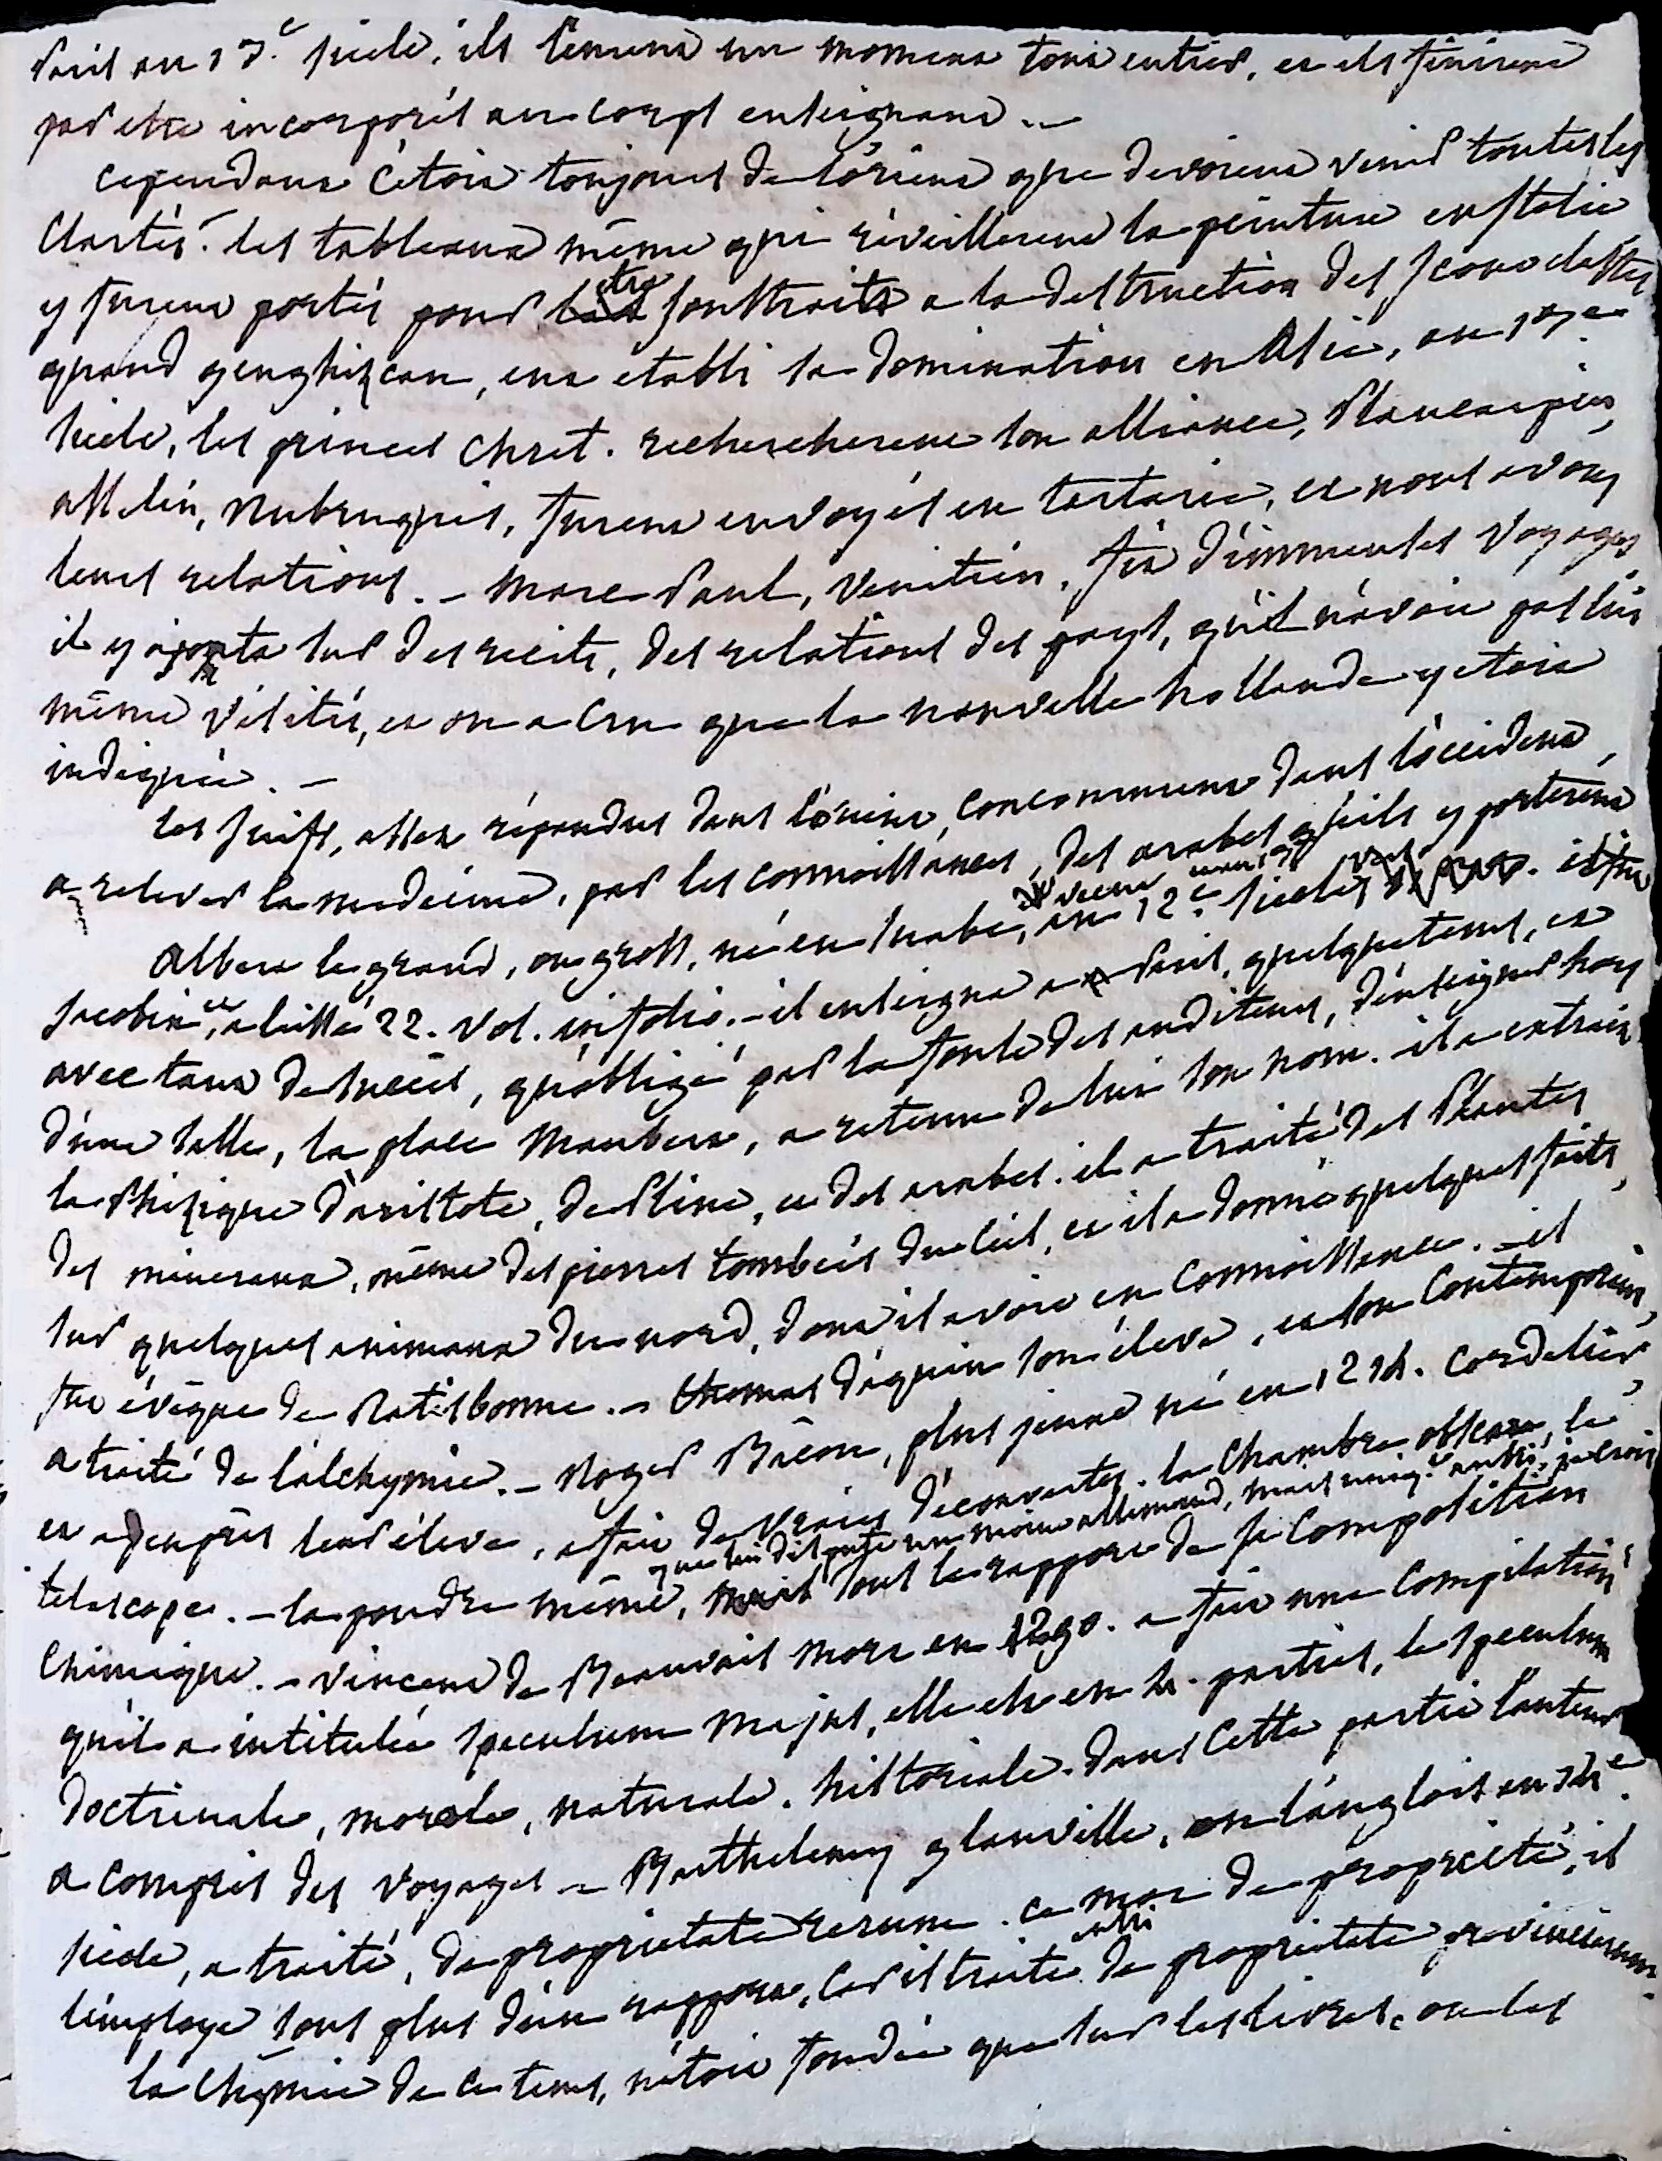 Paris au 13.e siecle, ils l'emurent un moment tout entier, et ils finirent
par etre incorporés au corps enseignant. —
cependant c'étoit toujours de l'orient que devoient venir toutes les
Clartés. les tableaux même qui réveillerent la peinture en Italie
y furent portés pour être soustraits a la destruction des Iconoclastes
quand genghizcan, eut etabli sa domination en Asie, au 13e.
siecle, les princes Chret. rechercherent son alliance, Plancarpin,
asselin, Rubruquis, furent envoyés en tartarie, et nous avons
leurs relations. — Marc Paul, Venitien, fit d'immenses voyages
il y ajouta sur des recits, des relations des pays, qu'il n'avoit pas lui
même visités, et on a cru que la nouvelle hollande y etoit
indiquée. —
les Juifs, assez répandus dans l'orient, concoururent dans l'occident,
a relever la medecine, par les connoissances, des arabes qu'ils y porterent
Albert le grand, ou gross, né en Suabe, au 12e. siecle, il fut
Jacobin, et a laissé 22. vol. in folio. — il enseigna a Paris, quelque tems, et
avec tant de succès, qu'obligé par la foule des auditeurs, d'enseigner hors
d'une salle, la place Maubert, a retenu de lui son nom. il a extrait
la Phizique d'aristote, de Pline, et des arabes. il a traité des Plantes
des mineraux, même des pierres tombées du ciel, et il a donné quelques faits,
sur quelques animaux du nord, dont il avoit eu connoissance. — il
fut évêque de Ratisbonne. — thomas d'aquin son éleve, et son contemporain,
a traité de l'alchymie. — Roger Bacon, plus jeune né en 1214. Cordelier,
et a peu près leur éleve, a fait de vraies découvertes. la Chambre obscure, le
que lui dispute un moine allemand, mais aussi, je crois
telescope. — la poudre même, sous le rapport de sa composition
Chimique. — Vincent de Beauvais mort en 1290. a fait une compilation
qu'il a intitulée speculum majus, elle est en 4. parties, le speculum
doctrinale, morale, naturale, historiale. dans cette partie l'auteur
a compris des voyages — Barthelemy glanville, anglois au 14e.
siecle, a traité, de proprietate rerum. ce mot de propriété, il
l'employe sous plus d'un rapport, car il traite aussi de proprietate
la Chymie de ce tems, n'étoit fondée que sur les livres, ou les